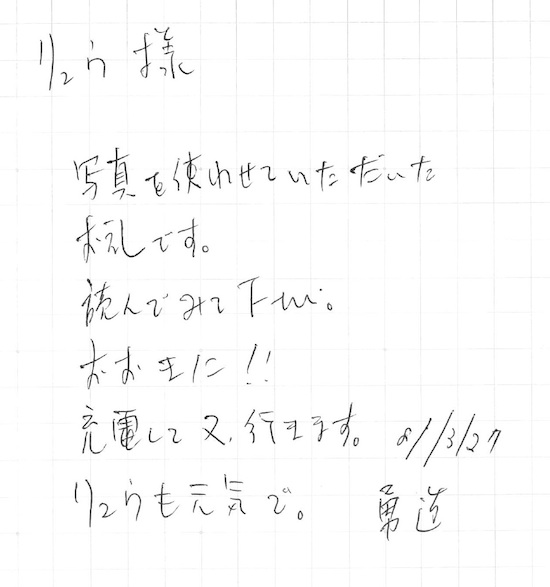 りょう 様
写真を使わせていただいた
お礼です。
読んでみて下さい。
おおきに!!
充電して又、行きます。
りょうも元気で。 勇造